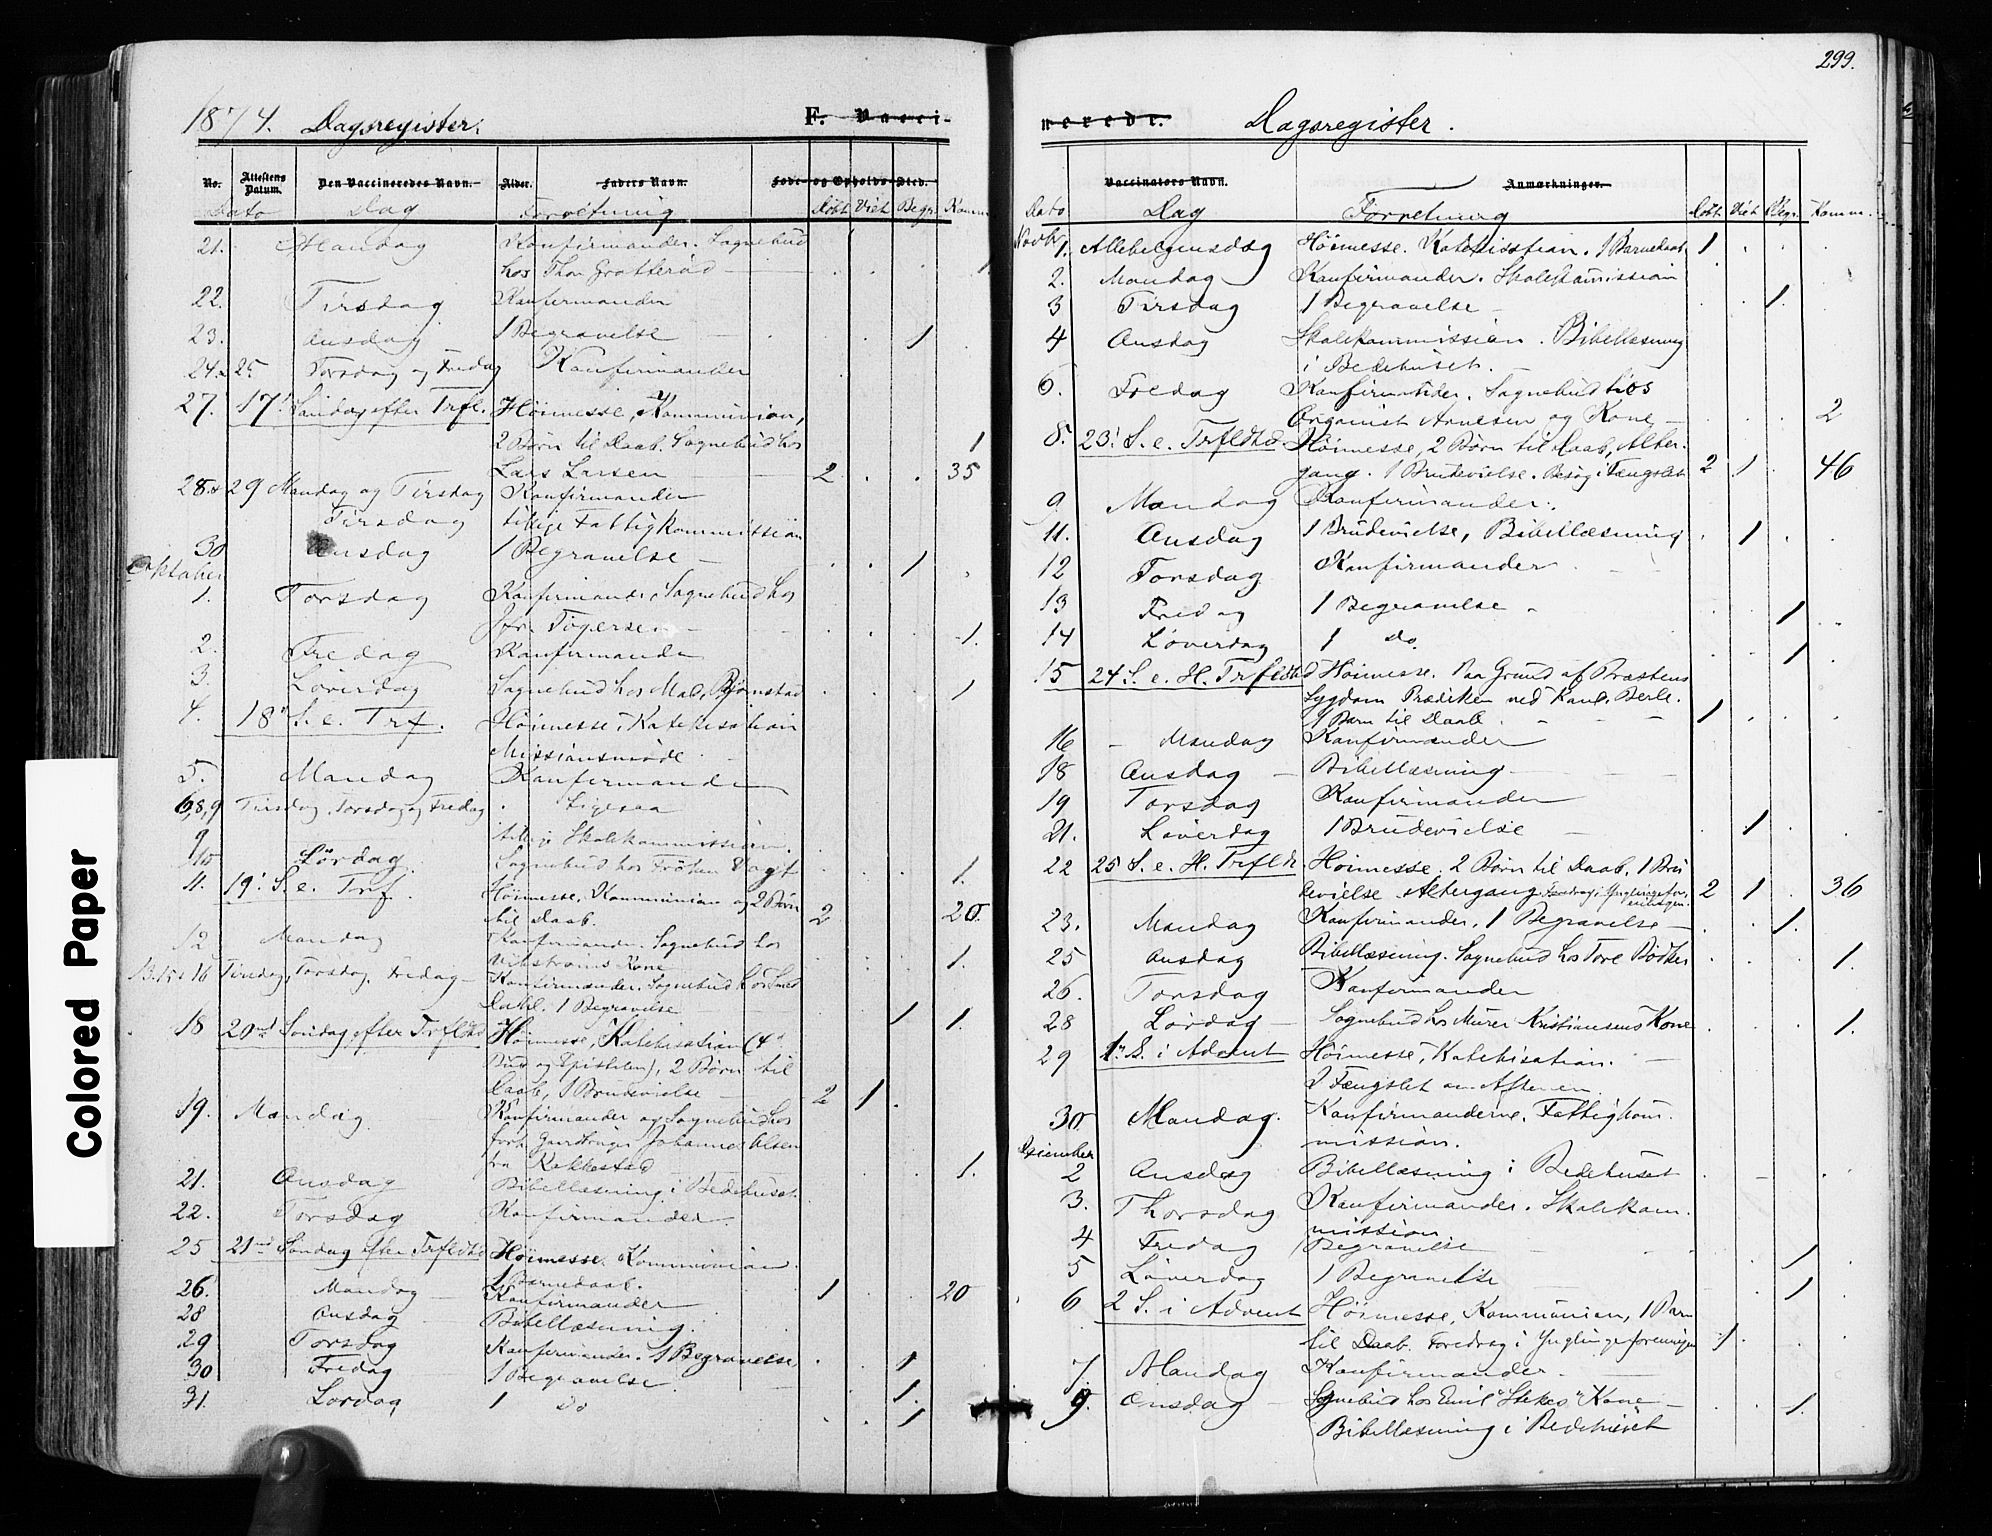 299.
1874. Dagsregister.
F. Vacci-
nerede.
Dagsregister.
No. Attestens Datum. Den Vaccineredes Navn. Alder. Faders Navn. Føde- og Opholds-Sted.
Dato Dag Forretning Døbt Viet Begr. Komm.
21. Mandag Konfirmander. Sognebud
hos Thor Grotterød 1
22. Tirsdag Konfirmander
23. Onsdag 1 Begravelse 1
24 & 25 Torsdag og Fredag Konfirmander
27. 17' Søndag efter Trfl. Høimesse, Kommunion,
2 Børn til Daab. Sognebud hos 1
Lars Larsen 2 35
28 & 29 Mandag og Tirsdag Konfirmander
Tirsdag tillige Fattigkommission
30 Onsdag 1 Begravelse 1
Oktober
1. Torsdag Konfirmander, Sognebud hos
Jfr. Togersen 1
2. Fredag Konfirmander
3. Løverdag Sognebud hos Mad. Bjørnstad 1
4. 18' S. e. Trf. Høimesse, Katekisation
Missionsmøde
5. Mandag Konfirmander
6, 8, 9 Tirsdag, Torsdag og Fredag Ligesaa
9 tillige Skolekommission.
10 Lørdag Sognebud hos Frøken Vogt 1.
11. 19' S. e. Trf. Høimesse, Kommunion og 2 Børn
til Daab. 2 20.
12 Mandag Konfirmander. Sognebud hos
Vikstrøms Kone 1.
13. 15 & 16 Tirsdag, Torsdag, Fredag Konfirmander. Sognebud hos
Dahl. 1 Begravelse 1 1.
18 20nd Søndag efter Trfldtd Høimesse, Katekisation (4
Bud og Epistelen), 2 Børn til
Daab, 1 Brudevielse 2 1
19. Mandag Konfirmander og Sognebud hos
forh. Gaardbruger Johannes Olsen
fra Kakkestad 1.
21. Onsdag Bibellæsning i Bedehuset
22. Torsdag Konfirmander
25 21nd Søndag efter Trfldtd Høimesse. Kommunion.
1 Barnedaab. 1 20
26. Mandag Konfirmander
28 Onsdag Bibellæsning.
29 Torsdag Konfirmander. 1 Begravelse 1
30 Fredag 1 Begravelse. 1.
31. Lørdag 1 Do 1
Vaccinators Navn. Anmærkninger.
Dato Dag Forretning Døbt Viet Begr. Komm.
Novbr 1. Allehelgensdag Høimesse. Katekisation. 1 Barnedaab 1
2. Mandag Konfirmander. Skolekommission
3 Tirsdag 1 Begravelse 1.
4 Onsdag Skolekommission. Bibellæsning
i Bedehuset.
6. Fredag Konfirmander. Sognebud hos
Organist Arnesen og Kone 2
8. 23' S. e. Trfldtd Høimesse, 2 Børn til Daab, Alter-
gang. 1 Brudevielse. Besøg i Fængslet 2 1 46
9 Mandag Konfirmander.
11. Onsdag 1 Brudevielse, Bibellæsning 1
12 Torsdag Konfirmander
13 Fredag 1 Begravelse 1
14 Løverdag 1 Do. 1
15 24. S. e. H. Trfldtd Høimesse. Paa Grund af Præstens
Sygdom Prædiken ved Kand. Berle.
1 Barn til Daab 1
16 Mandag Konfirmander
18 Onsdag Bibellæsning
19 Torsdag Konfirmander
21. Løverdag 1 Brudevielse 1
22 25 S. e. H. Trfldt. Høimesse. 2 Børn til Daab. 1 Bru
devielse Altergang. Foredrag i Ynglingefor- 2 1 36
23. Mandag Konfirmander, 1 Begravelse 1.
25 Onsdag Bibellæsning. Sognebud hos Tore Bødker 1.
26. Torsdag Konfirmander
28 Lørdag Sognebud hos Murer Kristiansens Kone 1.
29 1' S. i Advent Høimesse, Katekisation.
I Fængslet om Aftenen
30 Mandag. Konfirmanderne. Fattigkom-
mission.
December
2 Onsdag Bibellæsning i Bedehuset
3. Thorsdag Konfirmander. Skolekom-
mission
4 Fredag 1 Begravelse 1
5 Løverdag 1 Begravelse 1
6 2 S. i Advent Høimesse, Kommunion, 1 Barn
til Daab. Foredrag i Ynglingeforeningen 1
7. Mandag Konfirmander.
9. Onsdag Sognebud hos Emil "Stekes" Kone 1.
Bibellæsning i Bedehuset
Colored Paper